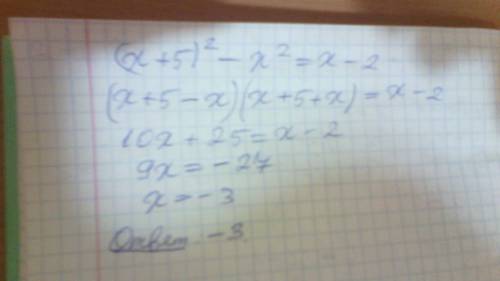 (x+5)² - x² = x - 2
(x+5-x)(x+5+x) = x - 2
10x + 25 = x - 2
9x = -27
x = -3
Ответ: -3.